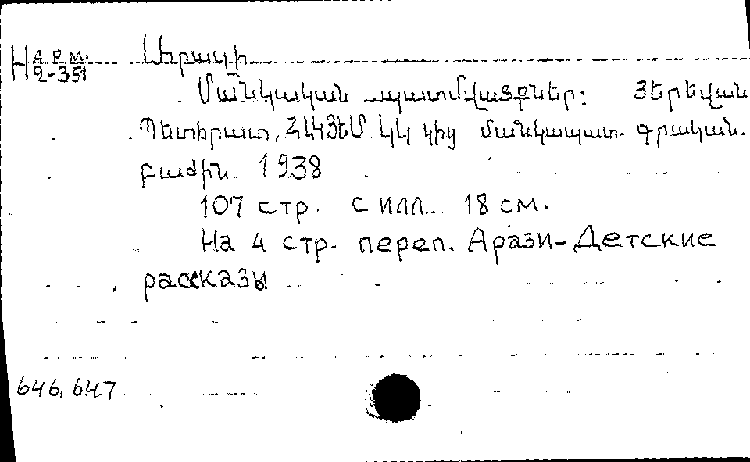 Н АРМ. 2-351
Արազի
Մանկական պատմվածքներ: Յերևան
Պետհրատ, ՀԼԿՅԵՄ ԿԿ կից մանկապատ. գրական.
բաժին 1938
107 стр. с илл. 18 см.
На 4 стр. переп. Арази-Детские
рассказы
646, 647